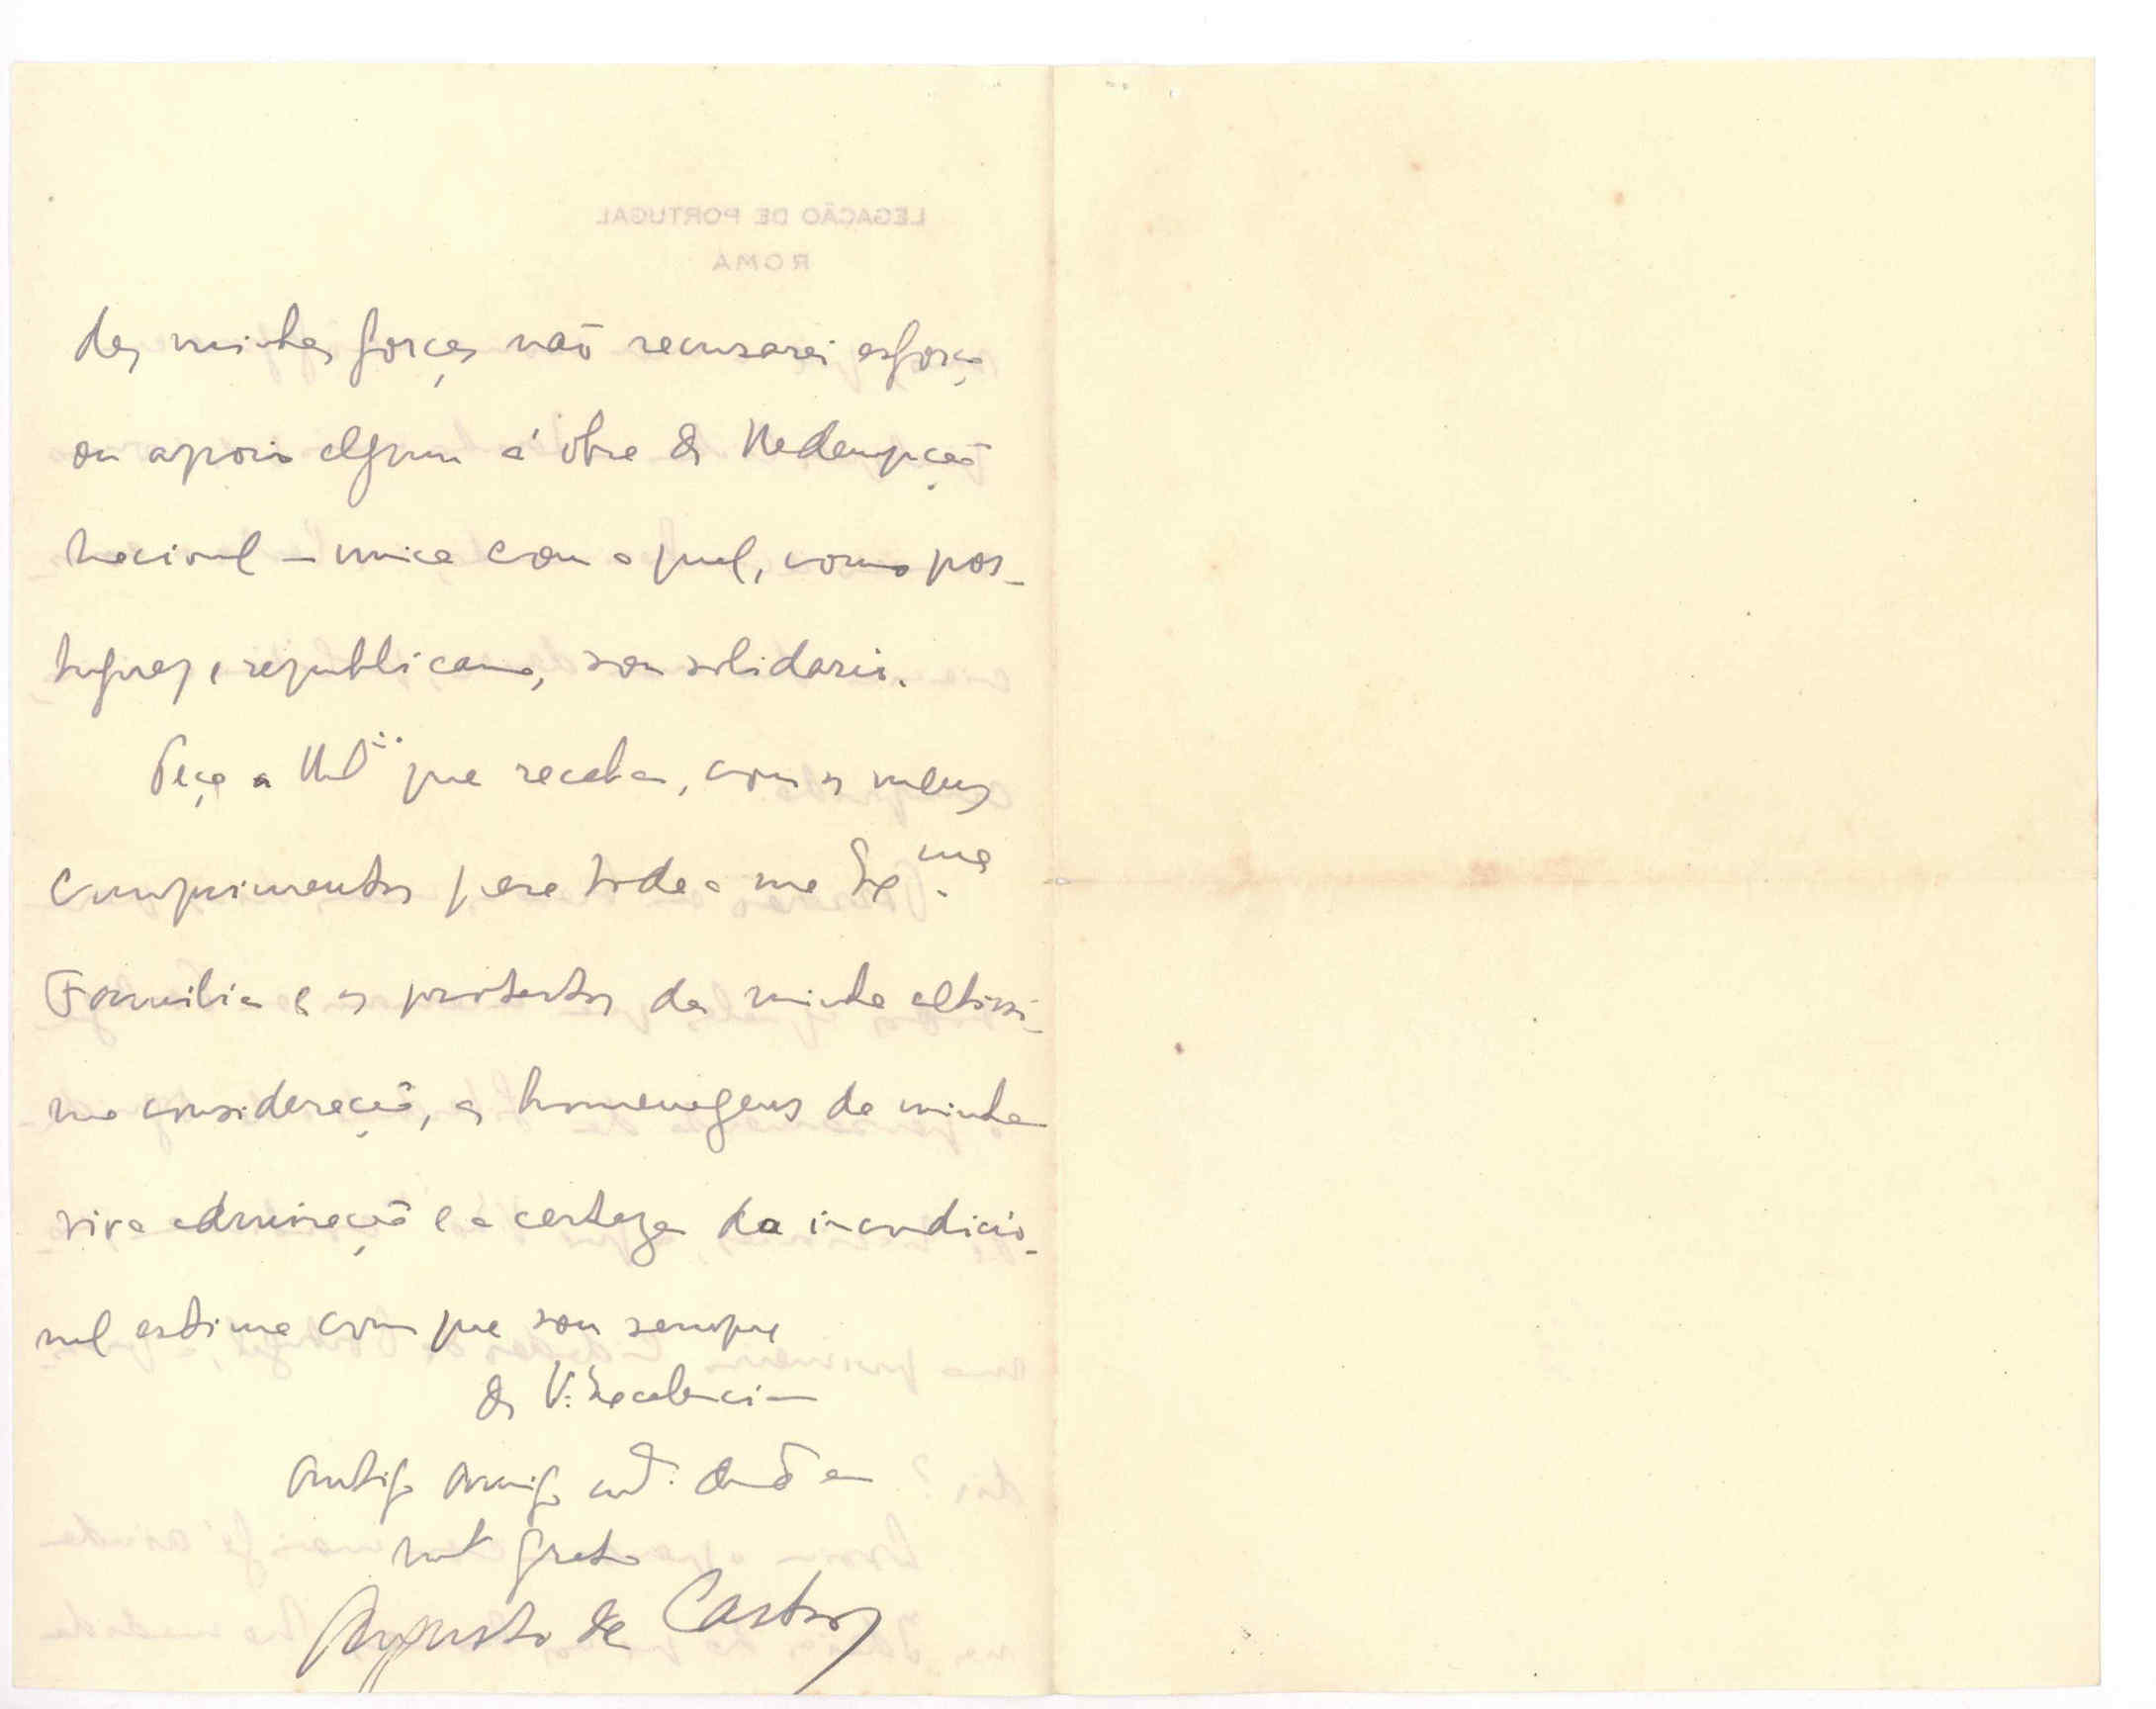 LEGAÇÃO DE PORTUGAL
ROMA
das minhas forças não recusarei esforço
ou apoio algum á obra de Redempção
Nacional – unica com a qual, como por-
tuguez e republicano, sou solidario.
Peço a que receba, com os meus
cumprimentos para toda a sua Ex.ma
Familia e os protestos da minha altissi-
ma consideração, as homenagens da minha
viva admiração e a certeza da incondicio-
nal estima com que sou sempre
de V. Excelencia
Antigo Amigo
mt.º grato
Augusto de Castro